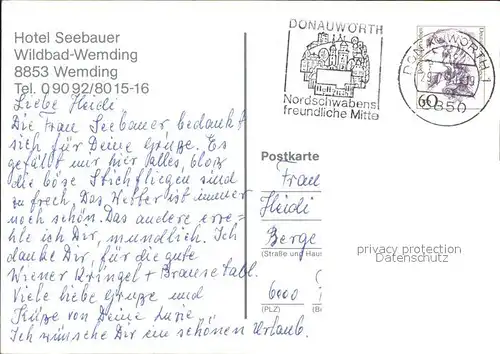 Hotel Seebauer
Wildbad-Wemding
8853 Wemding
Tel. 0 90 92/80 15-16
Liebe Heidi
Die Frau Seebauer bedankt
sich für Deine Grüße. Es
gefällt mir hier alles, bloß
die böse Stichfliegen sind
zu frech. Das Wetter ist immer
noch schön. Das andere erzä-
hle ich Dir, mundlich. Ich
danke Dir, für die gute
Wiener Kringel + Brause Tabl.
Viele liebe Grüße und
Küsse von Deine Luzie.
Ich wünsche Dir ein schönen Urlaub.
DONAUWÖRTH
Nordschwabens
freundliche Mitte
DONAUWÖRTH 1
8850
60
Postkarte
Frau
Heidi
Berge
(Straße und Haus
6000
(PLZ)
privacy protection
Datenschutz